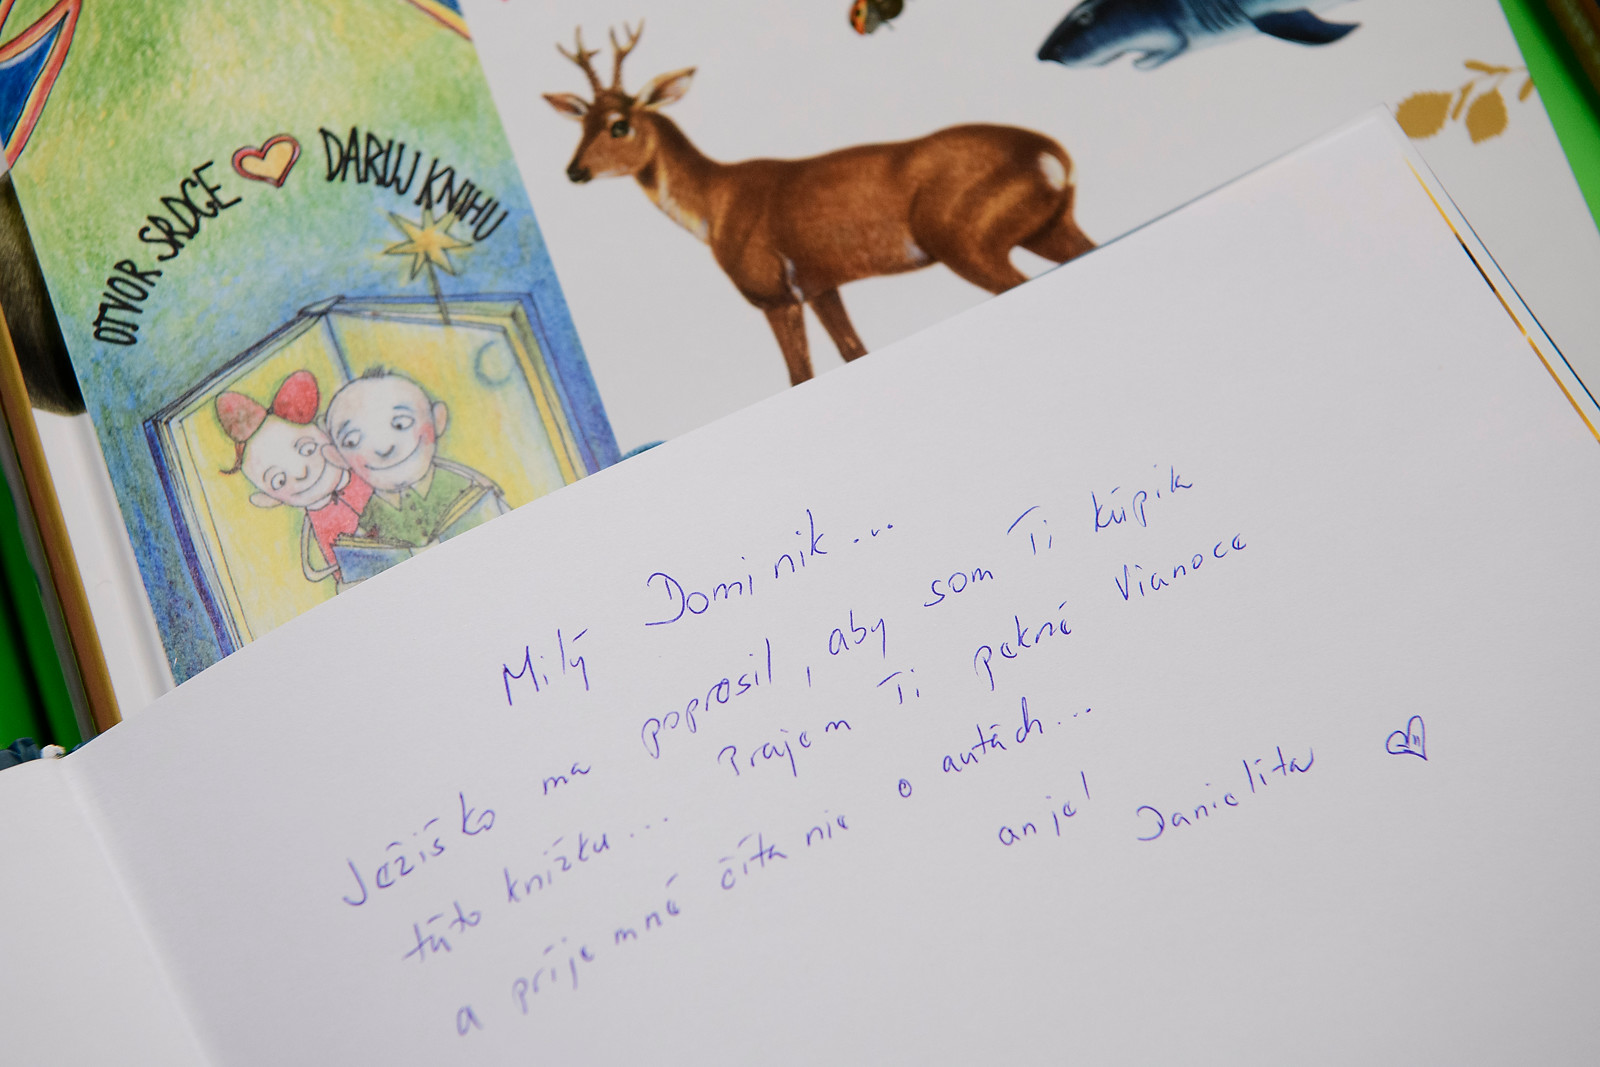 OTVOR SRDCE DARUJ KNIHU
Milý Dominik...
Ježiško ma poprosil, aby som Ti kúpila
túto knižku... Prajem Ti pekné Vianoce
a príjemné čítanie o autách...
anjel Danielita